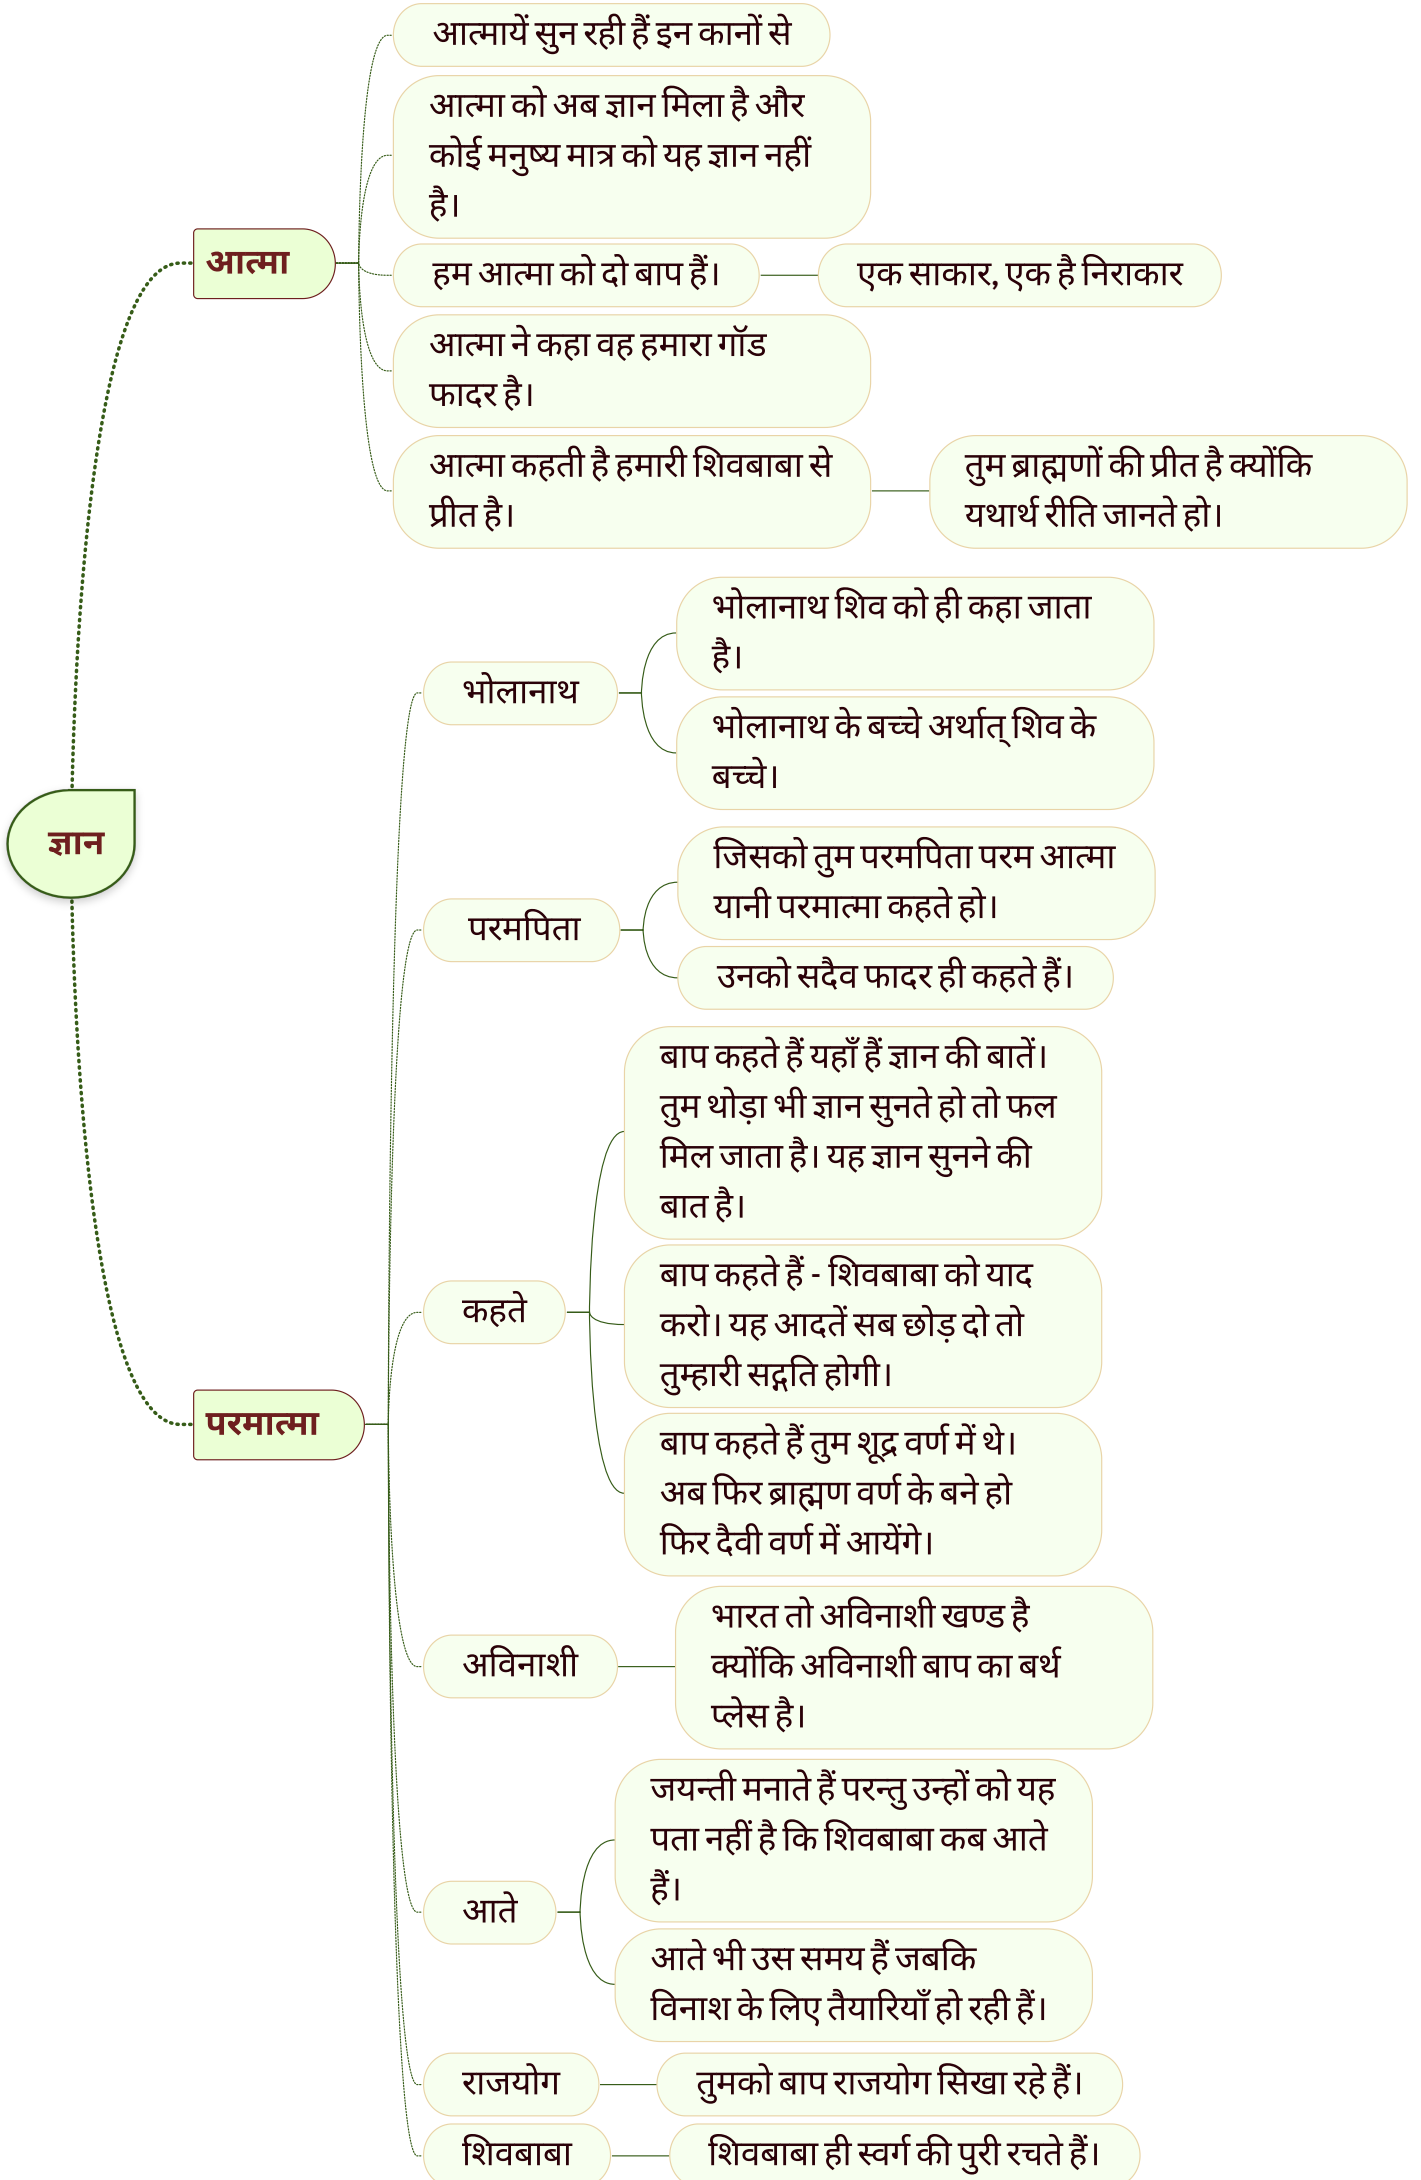 आत्मायें सुन रही हैं इन कानों से
आत्मा को अब ज्ञान मिला है और
कोई मनुष्य मात्र को यह ज्ञान नहीं
है।
आत्मा
हम आत्मा को दो बाप हैं।
एक साकार, एक है निराकार
आत्मा ने कहा वह हमारा गॉड
फादर है।
आत्मा कहती है हमारी शिवबाबा से
प्रीत है।
तुम ब्राह्मणों की प्रीत है क्योंकि
यथार्थ रीति जानते हो।
ज्ञान
परमात्मा
भोलानाथ
भोलानाथ शिव को ही कहा जाता
है।
भोलानाथ के बच्चे अर्थात् शिव के
बच्चे।
परमपिता
जिसको तुम परमपिता परम आत्मा
यानी परमात्मा कहते हो।
उनको सदैव फादर ही कहते हैं।
कहते
बाप कहते हैं यहाँ हैं ज्ञान की बातें।
तुम थोड़ा भी ज्ञान सुनते हो तो फल
मिल जाता है। यह ज्ञान सुनने की
बात है।
बाप कहते हैं - शिवबाबा को याद
करो। यह आदतें सब छोड़ दो तो
तुम्हारी सद्गति होगी।
बाप कहते हैं तुम शूद्र वर्ण में थे।
अब फिर ब्राह्मण वर्ण के बने हो
फिर दैवी वर्ण में आयेंगे।
अविनाशी
भारत तो अविनाशी खण्ड है
क्योंकि अविनाशी बाप का बर्थ
प्लेस है।
आते
जयन्ती मनाते हैं परन्तु उन्हों को यह
पता नहीं है कि शिवबाबा कब आते
हैं।
आते भी उस समय हैं जबकि
विनाश के लिए तैयारियाँ हो रही हैं।
राजयोग
तुमको बाप राजयोग सिखा रहे हैं।
शिवबाबा
शिवबाबा ही स्वर्ग की पुरी रचते हैं।